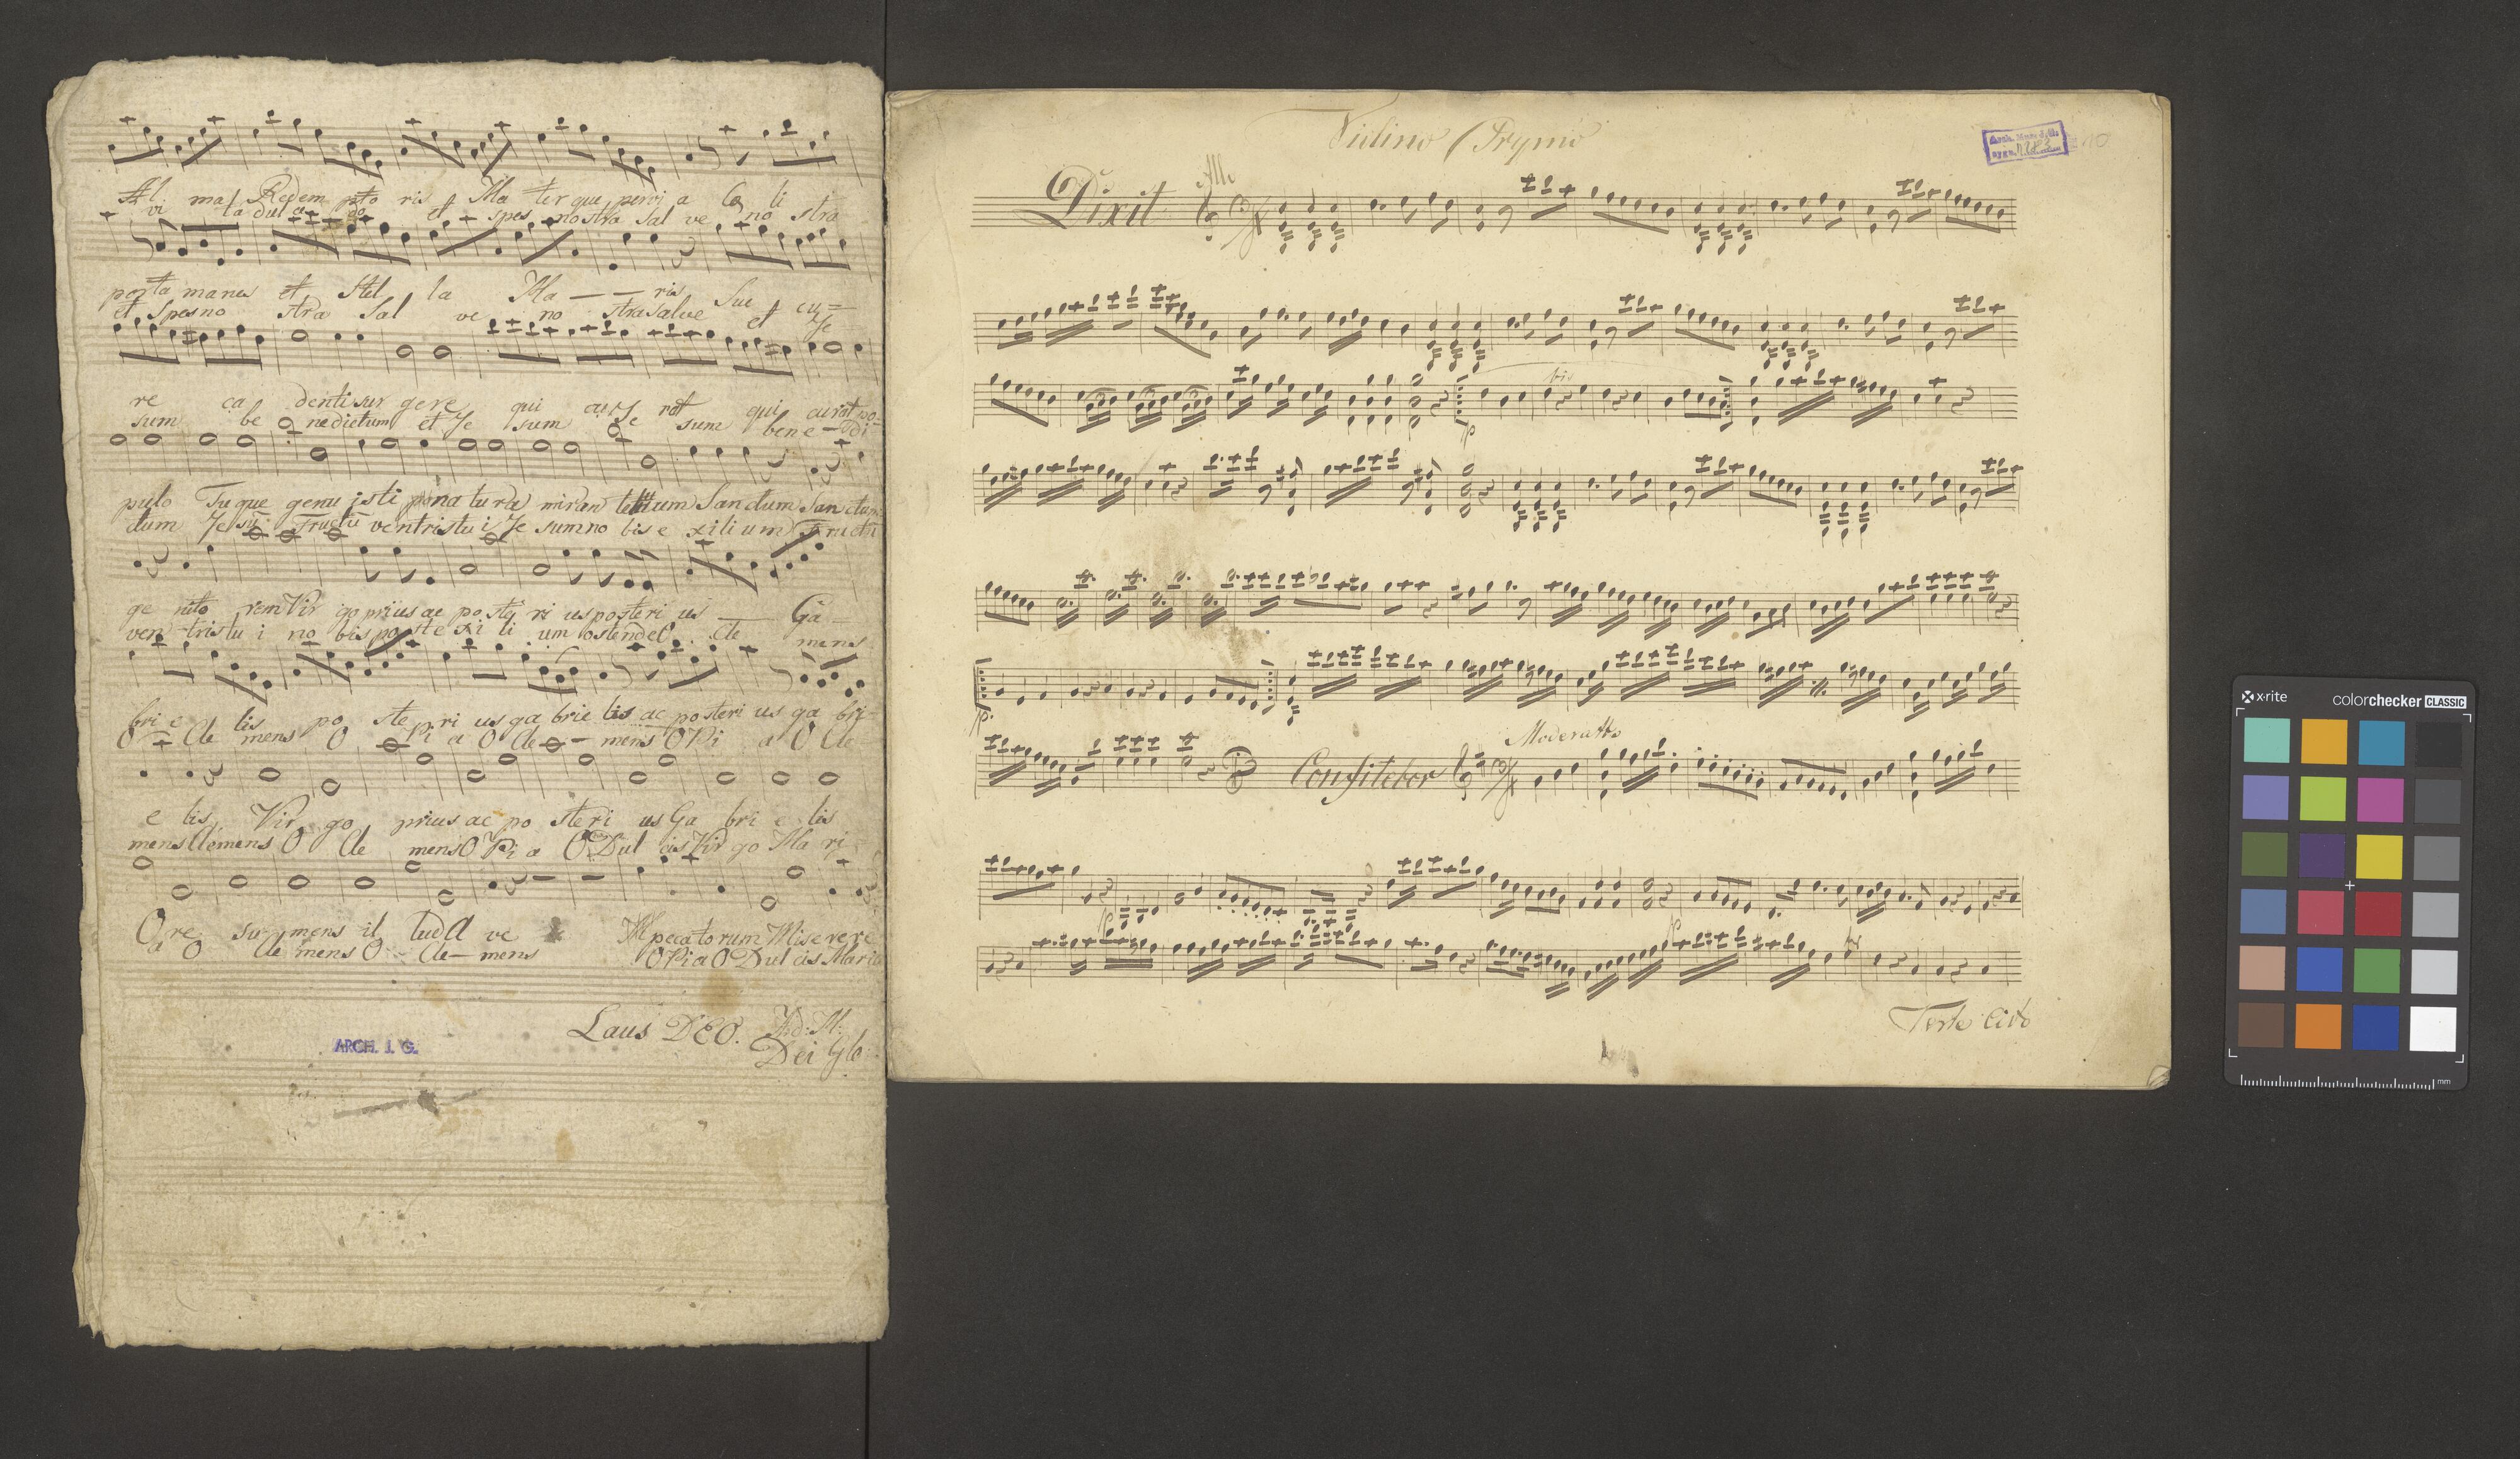 Al ma Redem pto ris Ma ter que pervi a Cæ li
vi ta dul ce do et spes no stra Sal ve no stra
porta manes et Stel la Ma — — ris Suc cu=
et Spes no stra Sal ve no stra salve et Je
re ca denti sur gere qui cu rat qui curat po-
sum be nedictum et Je sum Je sum bene - di-
pulo Tu que genu isti na tura miran te tuum Sanctum Sanctum
dum Jesū fructū ventris tu i Je sum no bis e xilium Fructū
ge nito rem Vir go prius ac poste ri us posteri us — Ga
ven tris tu i no bis po st e xi li um ostende O Cle mens
bri e lis po ste ri us ga brie lis ac posteri us ga bri-
O Cle mens O Pi a O Cle - mens O Pi a O Cle
e lis Vir go prius ac po ste ri us Ga bri e lis
mens Clemens O Cle mens O Pi a O Dul cis Vir go Ma ri
O re su mens il lud A ve pecatorum Miserere
a O Cle mens O Cle - mens O Pi a O Dul cis Maria
Laus DEO. Ad: M:
Dei Glo:
ARCH. J. G.
Violino Prymo
Allo
Dixit
10
bis
p
p.
Moderatto
Confitebor
p
p
for
Verte Cito
x-rite colorchecker CLASSIC
mm